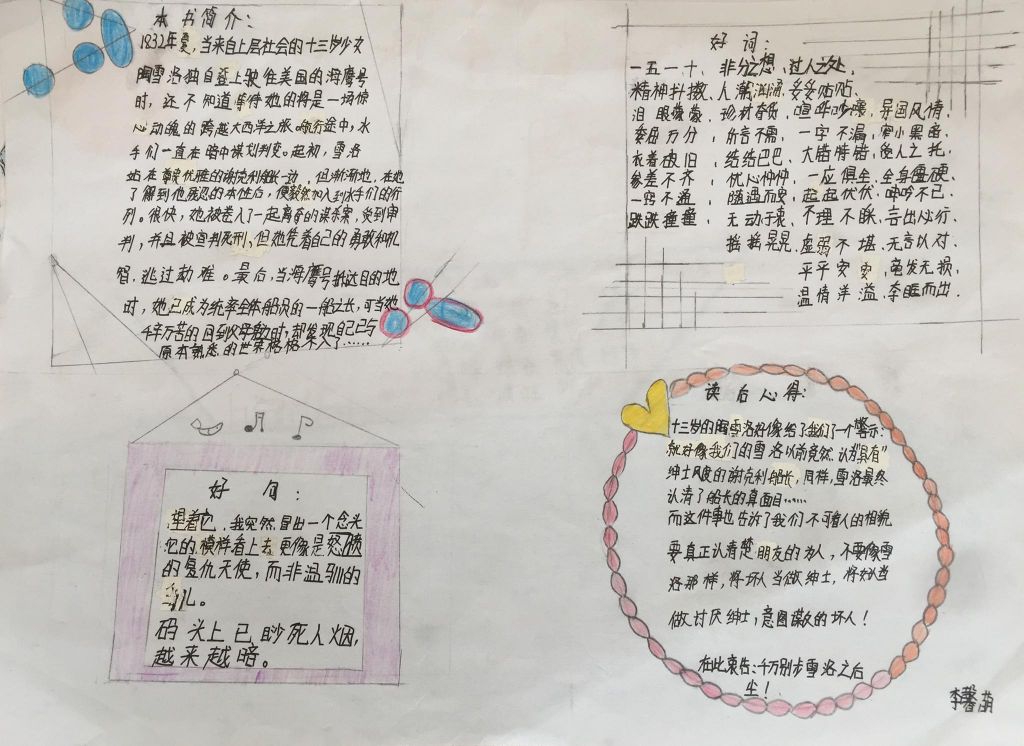 本书简介：
1832年夏，当来自上层社会的十三岁少女
陶雪洛独自登上驶往美国的海鹰号
时，还不知道等待她的将是一场惊
心动魄的跨越大西洋之旅。航行途中，水
手们一直在暗中谋划判变。起初，雪洛
站在尊贵优雅的谢克利船长一边，但渐渐地，在她
了解到他残忍的本性后，便毅然加入到水手们的行
列。很快，她被卷入了一起离奇的谋杀案，受到审
判，并且被宣判死刑，但她凭着自己的勇敢和机
智，逃过劫难。最后，当海鹰号抵达目的地
时，她已成为统率全体船员的一船之长，可当她
千辛万苦的回到父母身边时，却发现自己已与
原本熟悉的世界格格不入了……
好词：
一五一十、非分之想、过人之处、
精神抖擞、人潮汹涌、妥妥帖帖、
泪眼蒙蒙、珍材奇货、喧哗吵嚷、异国风情、
委屈万分，所言不需、一字不漏、窄小黑暗、
衣着破旧，结结巴巴、大错特错、受人之托、
参差不齐，忧心忡忡、一应俱全、全身僵硬、
一窍不通，随遇而安、起起伏伏、呻吟不已、
跌跌撞撞，无动于衷、不理不睬、言出必行、
摇摇晃晃、虚弱不堪、无言以对、
平平安安、毫发无损、
温情洋溢、夺眶而出．
好句：
望着它，我突然冒出一个念头
它的模样看上去更像是怒愤
的复仇天使，而非温驯的
鸟儿。
码头上已渺死人烟，
越来越暗。
读后心得：
十三岁的陶雪洛好像给了我们了一个警示：
就好像我们的雪洛以前竟然认为“具有”
绅士风度的谢克利船长，同样，雪洛最终
认清了船长的真面目……
而这件事也告诉了我们不可看人的相貌
要真正认清楚朋友的为人，不要像雪
洛那样，将坏人当做绅士，将好人当
做讨厌绅士，意图谋反的坏人！
在此哀告：千万别步雪洛之后
尘！
李馨萌